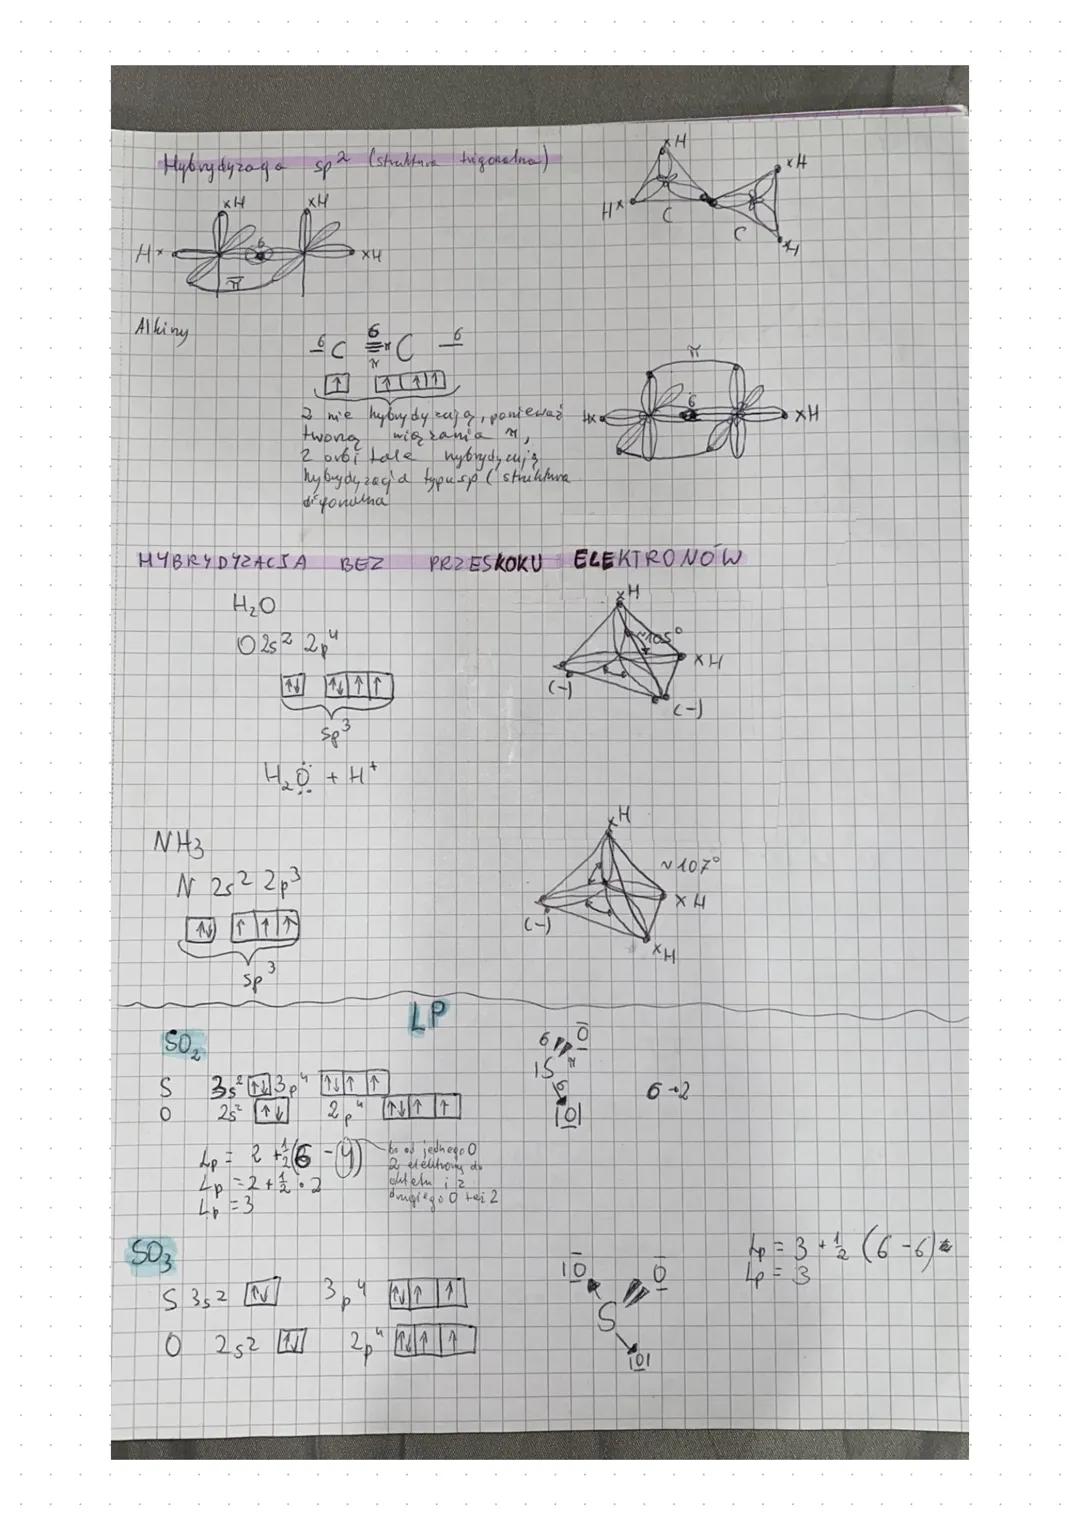 Hybrydyzacja sp² (struktura trigonalna)
xH
Hx
C
C
xH
xH
xH
xH
Hx
6
xH
π
Alkiny
6 C 6 ≡ π C 6
π
↑ ↑ ↑ ↑
2 nie hybrydyzują, ponieważ
tworzą wiązania π,
2 orbitale hybrydyzują
hybrydyzacja typu sp (struktura
digonalna
π
Hx
6
xH
HYBRYDYZACJA BEZ PRZESKOKU ELEKTRONÓW
H₂O
O 2s² 2p⁴
↑↓ ↑↓ ↑ ↑
sp³
H₂O + H⁺
xH
~105°
xH
(-)
(-)
NH3
N 2s² 2p³
↑↓ ↑ ↑ ↑
sp³
xH
~107°
xH
(-)
xH
LP
SO₂
S 3s² ↑↓ 3p⁴ ↑↓ ↑ ↑
O 2s² ↑↓ 2p⁴ ↑↓ ↑ ↑
Lp = 2 + ½(6 - 4)
Lp = 2 + ½ · 2
Lp = 3
bo od jednego O
2 elektrony do
oktetu i z
drugiego O też 2
6
O
S
π
6
|O|
6→2
SO₃
S 3s² ↑↓ 3p⁴ ↑↓ ↑ ↑
O 2s² ↑↓ 2p⁴ ↑↓ ↑ ↑
|O
O
S
|O|
Lp = 3 + ½ (6 - 6)
Lp = 3